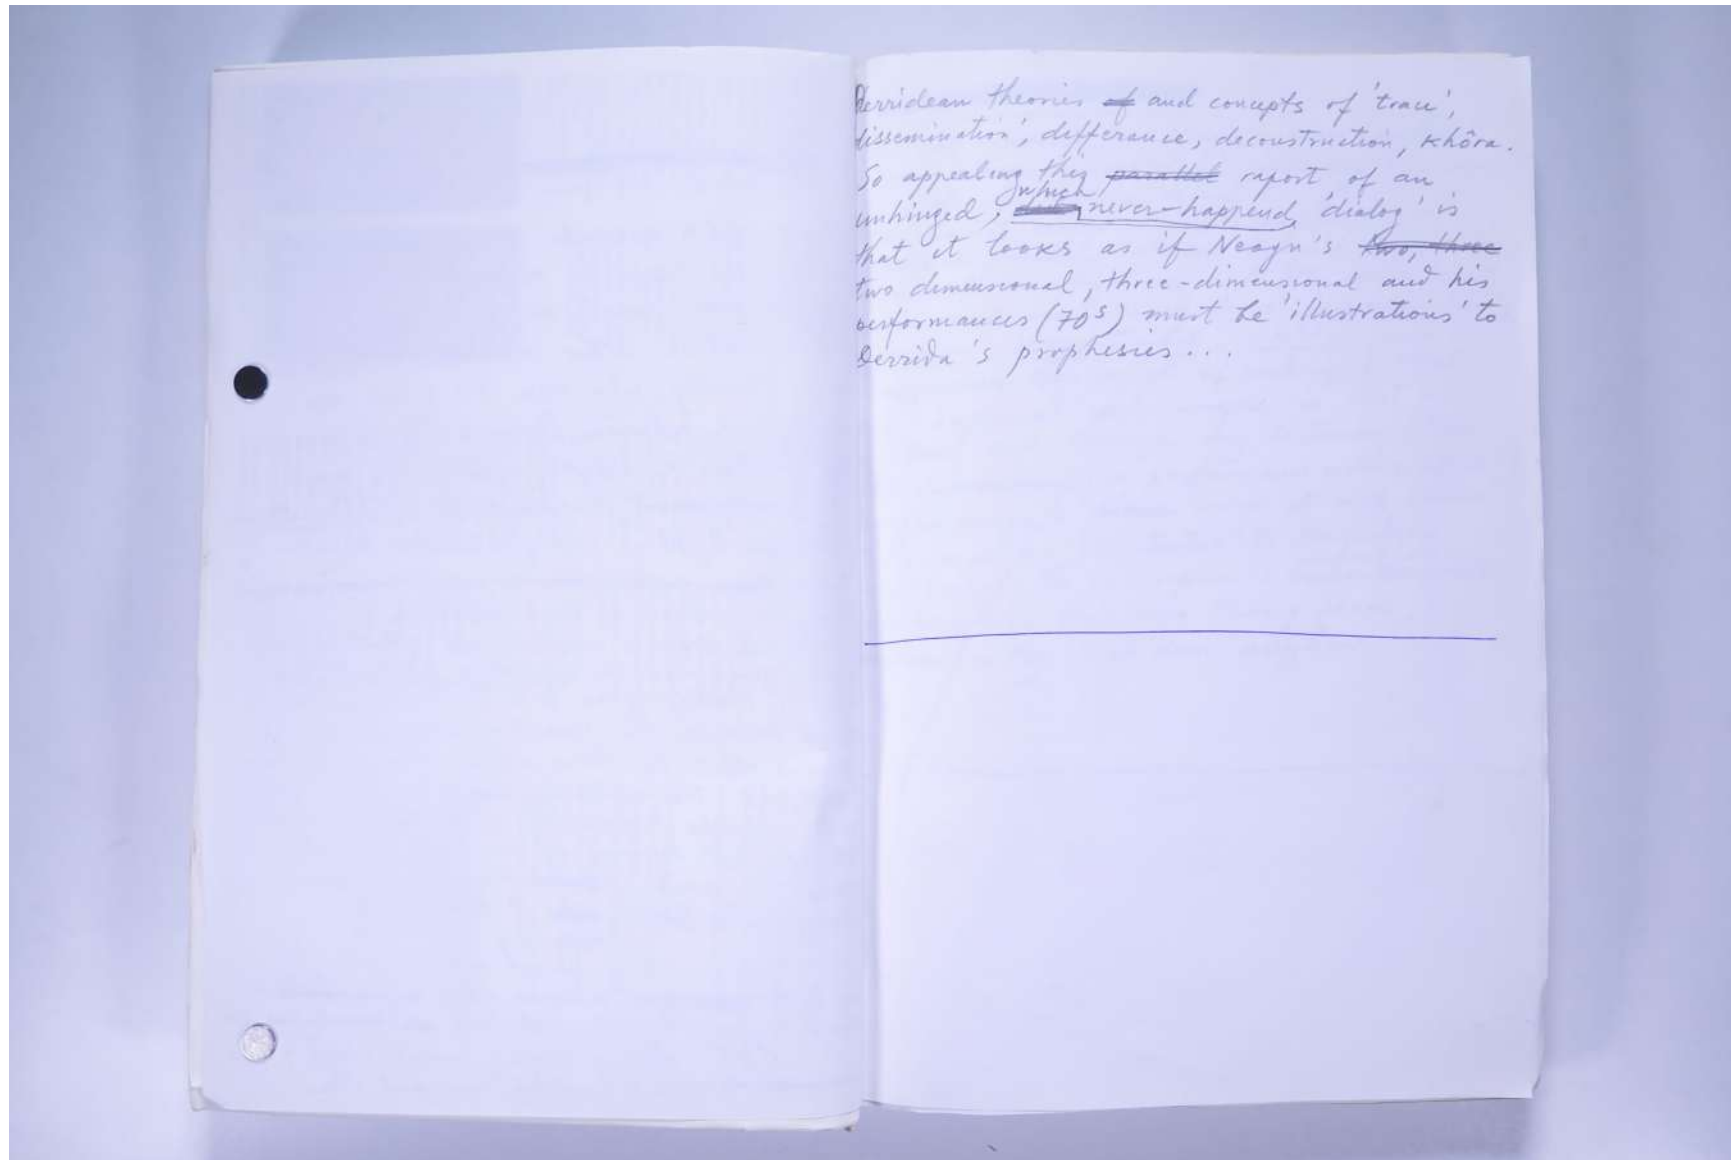 Derridean theories of and concepts of 'trace',
dissemination', differance, deconstruction, khôra.
So appealing this parallel raport of an
which
unhinged, never-happend, 'dialog' is
that it looks as if Neagu's two, three
two dimensional, three-dimensional and his
performances (70s) must be 'illustrations' to
Derrida's prophesies...